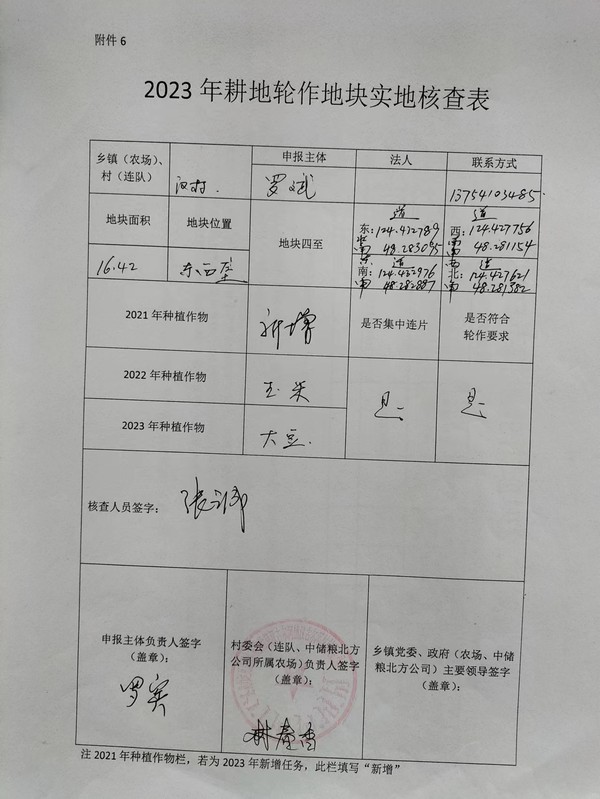 附件 6
2023 年耕地轮作地块实地核查表
乡镇（农场）、
村（连队）
申报主体
法人
联系方式
罗斌
13754103485
地块面积
地块位置
地块四至
道
东：124.432789
48.283095
道
西：124.427756
南 48.281154
16.42
东西垄
道
南：124.432976
48.282887
道
北：124.427621
南 48.281382
2021 年种植作物
新增
是否集中连片
是否符合
轮作要求
2022 年种植作物
玉米
是
是
2023 年种植作物
大豆.
核查人员签字：
申报主体负责人签字
（盖章）：
村委会（连队、中储粮北方
公司所属农场）负责人签字
（盖章）：
乡镇党委、政府（农场、中储
粮北方公司）主要领导签字
（盖章）：
注 2021 年种植作物栏，若为 2023 年新增任务，此栏填写“新增”